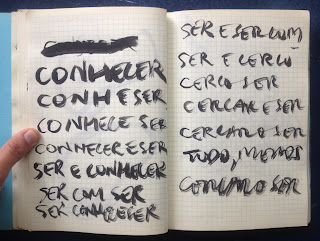 CONHECER
CONHESER
CONHECE SER
CONHECER E SER
SER E CONHECER
SER COM SER
SER CONHECER
SER E SER COM
SER E CERCO
CERCO SER
CERCAR E SER
CERCAR O SER
TUDO, MENOS
CERCAR O SER